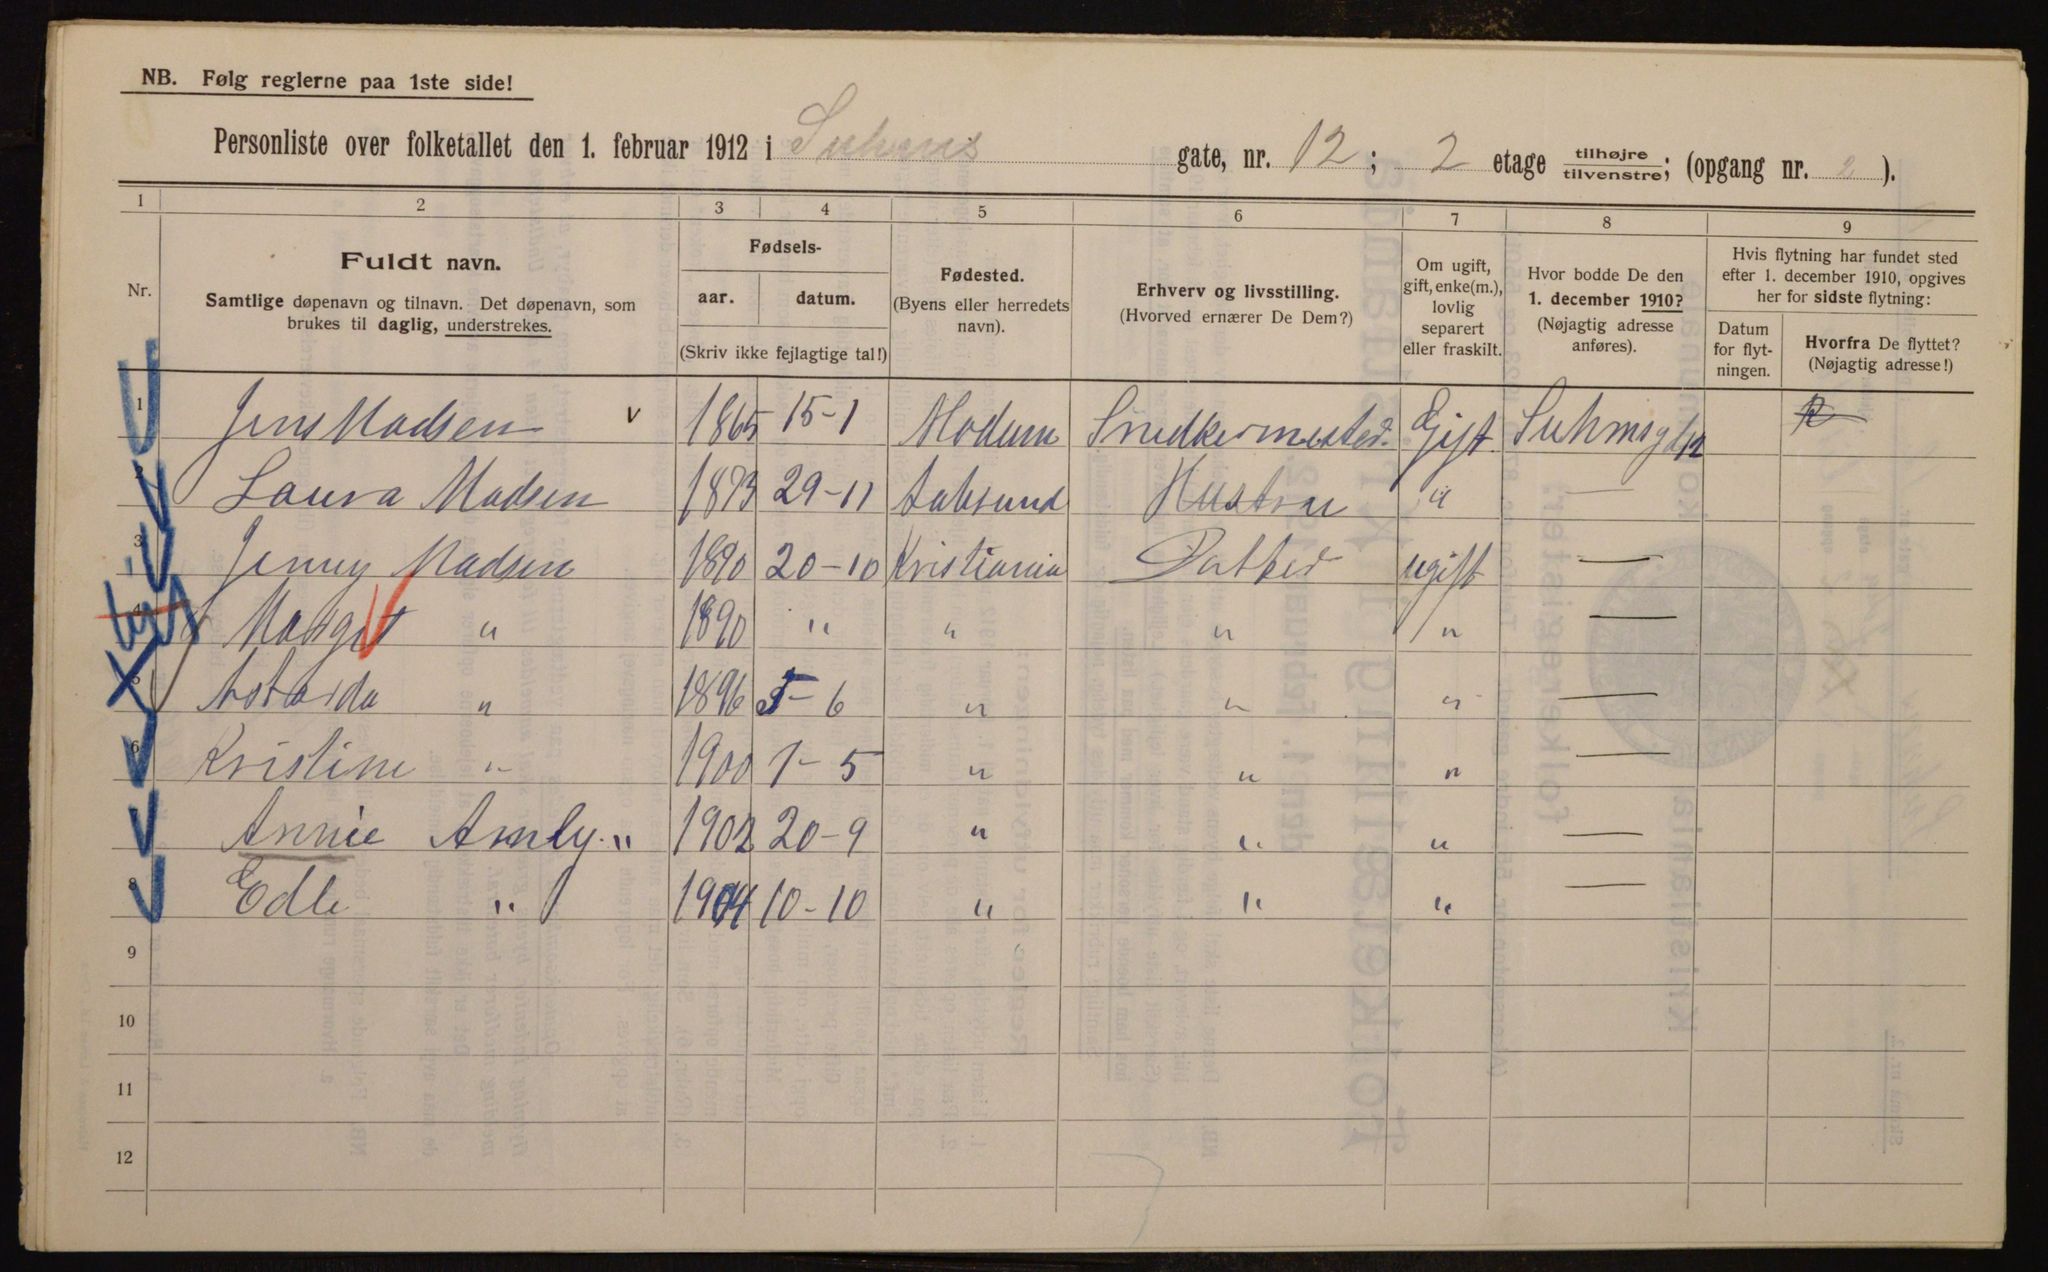 NB. Følg reglerne paa 1ste side!
Personliste over folketallet den 1. februar 1912 i Suhms gate, nr. 12; 2 etage tilhøjre tilvenstre; (opgang nr. 2).
1 2 3 4 5 6 7 8 9
Nr.
Fuldt navn.
Samtlige døpenavn og tilnavn. Det døpenavn, som
brukes til daglig, understrekes.
Fødsels-
aar. datum.
(Skriv ikke fejlagtige tal!)
Fødested.
(Byens eller herredets
navn).
Erhverv og livsstilling.
(Hvorved ernærer De Dem?)
Om ugift,
gift, enke(m.),
lovlig
separert
eller fraskilt.
Hvor bodde De den
1. december 1910?
(Nøjagtig adresse
anføres).
Hvis flytning har fundet sted
efter 1. december 1910, opgives
her for sidste flytning:
Datum
for flyt-
ningen.
Hvorfra De flyttet?
(Nøjagtig adresse!)
1 Jens Madsen v 1865 15-1 Modum Snedkermester Gift Suhmsgd 12
2 Laura Madsen 1873 29-11 Hustru " —
3 Jenny Madsen 1890 20-10 Kristiania Datter ugift —
4 Margit " 1890 " " " " —
5 " 1896 5-6 " " " —
6 Kristine " 1900 1-5 " " " —
Annie Amly " 1902 20-9 " " " —
8 Edle " 1904 10-10 " " " —
9
10
11
12